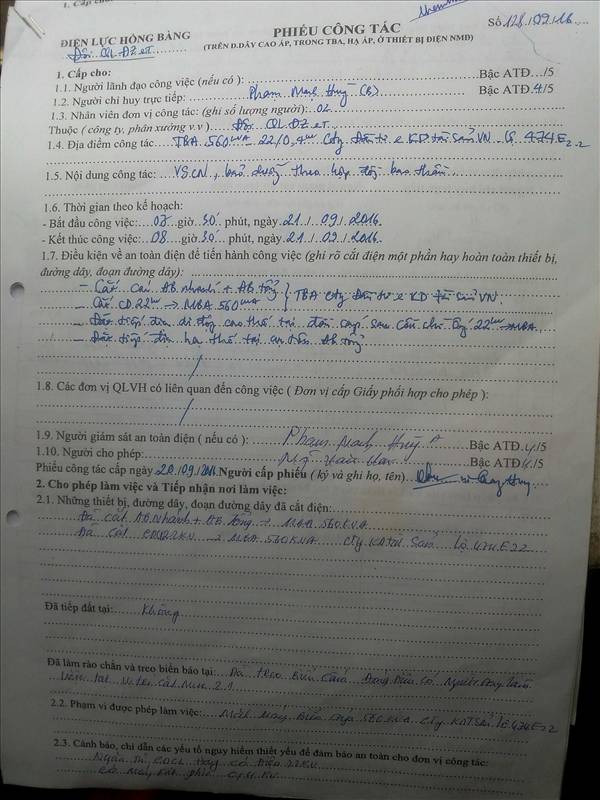 1. Cấp cho
ĐIỆN LỰC HỒNG BÀNG
PHIẾU CÔNG TÁC
Số 128/09/16
Đội QLĐZ
(TRÊN Đ.DÂY CAO ÁP, TRONG TBA, HẠ ÁP, Ở THIẾT BỊ ĐIỆN NMĐ)
1. Cấp cho:
1.1. Người lãnh đạo công việc (nếu có ): Bậc ATĐ.../5
1.2. Người chỉ huy trực tiếp: Phạm Mạnh Huỳ (B) Bậc ATĐ.4/5
1.3. Nhân viên đơn vị công tác: (ghi số lượng người): 02
Thuộc ( công ty, phân xưởng v.v ) Đội QLĐZ
1.4. Địa điểm công tác: TBA 560KVA - 22/0,4KV Cty Đầu tư & KD tài sản VN 474E2.2
1.5. Nội dung công tác: VSCN, bảo dưỡng theo hợp đồng
1.6. Thời gian theo kế hoạch:
- Bắt đầu công việc: giờ 30 phút, ngày 21 / 09 / 2016
- Kết thúc công việc: 08 giờ 30 phút, ngày 21 / 09 / 2016
1.7. Điều kiện về an toàn điện để tiến hành công việc (ghi rõ cắt điện một phần hay hoàn toàn thiết bị,
đường dây, đoạn đường dây):
- Cắt các AB nhánh + AB tổng } TBA Cty Đầu tư & KD tài sản VN
- Cắt CD 22KV → MBA 560KVA
- Đặt tiếp địa di động cao thế tại đầu cáp sau cầu chì ống 22KV → MBA
- Đặt tiếp địa hạ thế tại AB tổng
1.8. Các đơn vị QLVH có liên quan đến công việc ( Đơn vị cấp Giấy phối hợp cho phép ):
1.9. Người giám sát an toàn điện ( nếu có ): Phạm Mạnh Huỳ Bậc ATĐ.4/5
1.10. Người cho phép: Bậc ATĐ 4/5
Phiếu công tác cấp ngày 20/09/2016 Người cấp phiếu ( ký và ghi họ, tên)
2. Cho phép làm việc và Tiếp nhận nơi làm việc:
2.1. Những thiết bị, đường dây, đoạn đường dây đã cắt điện:
Đã cắt AB Nhánh + AB tổng → MBA 560KVA
Đã cắt 22KV → MBA 560KVA Cty KD tài sản Lộ 474E22
Đã tiếp đất tại: Không
Đã làm rào chắn và treo biển báo tại: Đã treo biển cấm đóng điện có người đang làm
việc tại vị trí cắt 2.1
2.2. Phạm vi được phép làm việc: Máy biến áp 560KVA Cty KD T Sản lộ 474E22
2.3. Cảnh báo, chỉ dẫn các yếu tố nguy hiểm thiết yếu để đảm bảo an toàn cho đơn vị công tác:
có điện 22KV